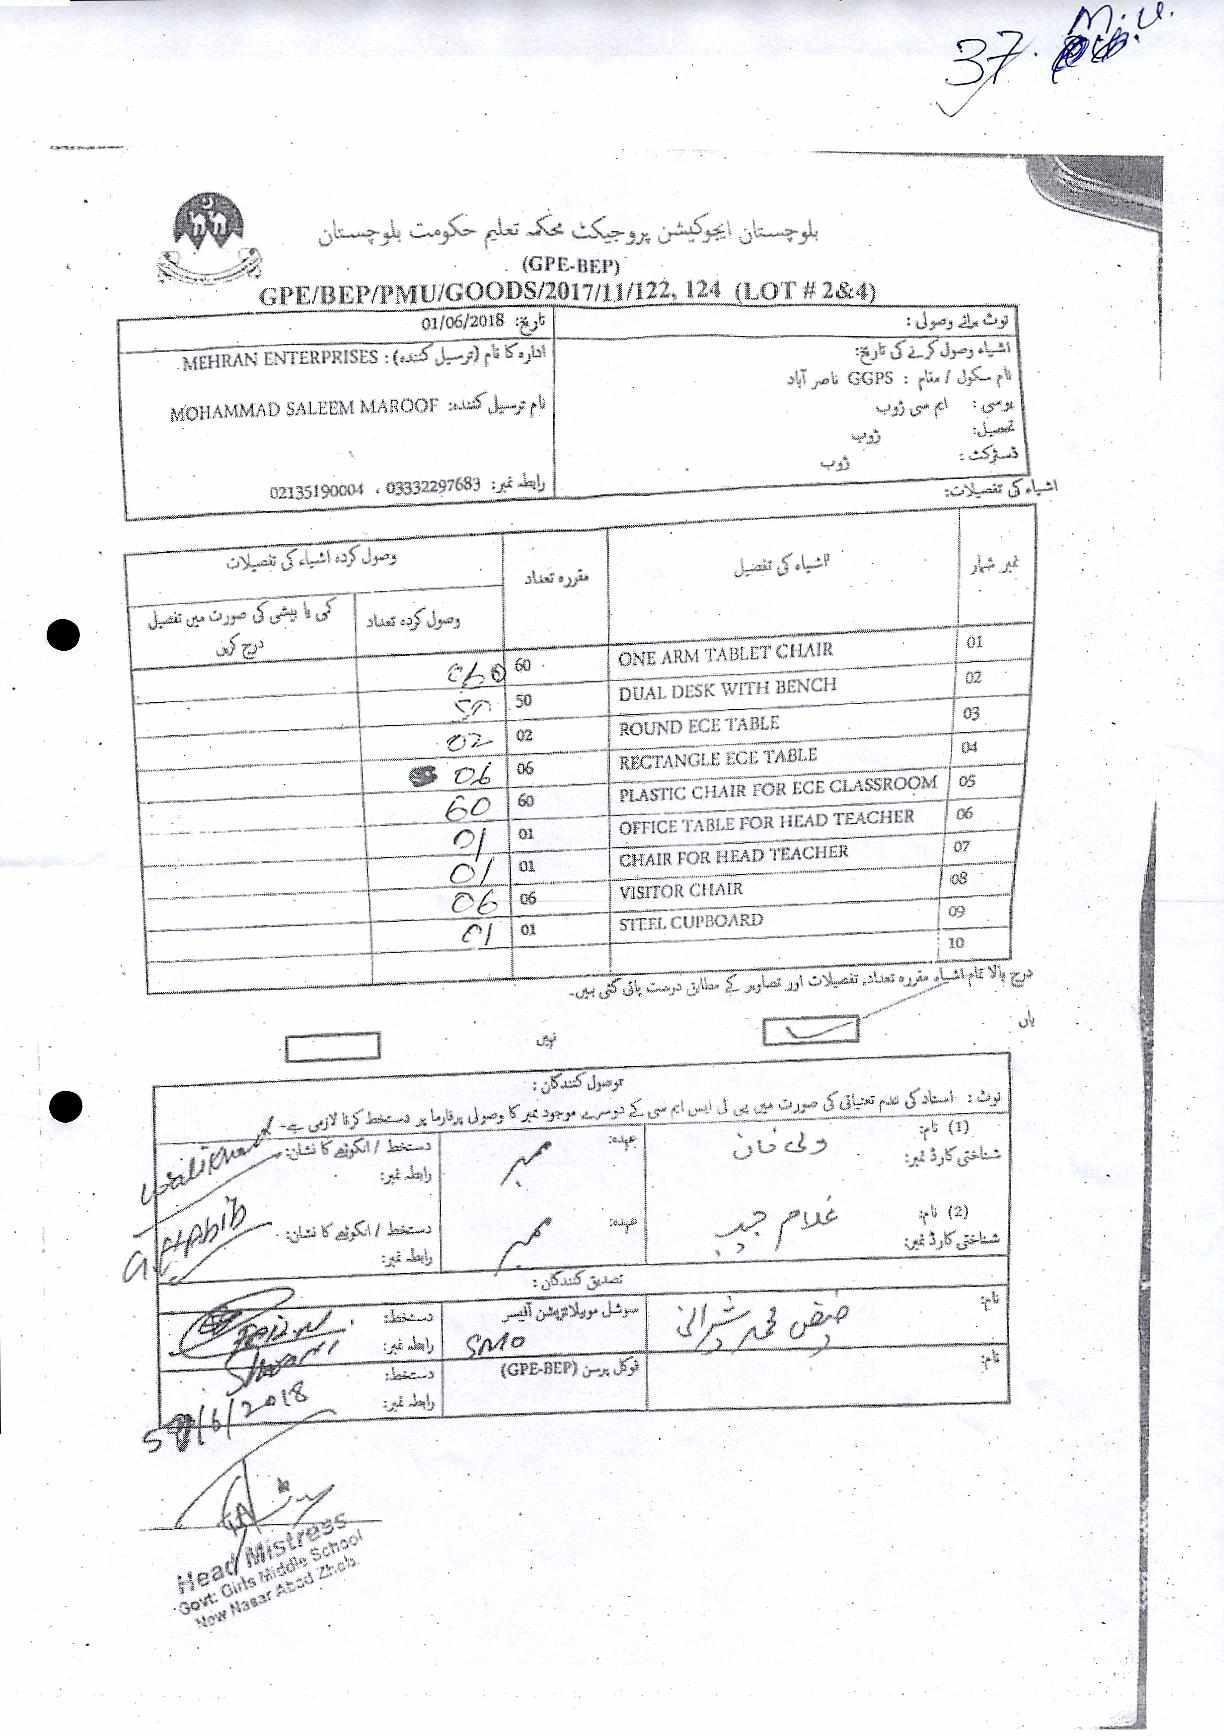 37. M.U.
بلوچستان ایجوکیشن پروجیکٹ محکمہ تعلیم حکومت بلوچستان
(GPE-BEP)
GPE/BEP/PMU/GOODS/2017/11/122, 124 (LOT # 2&4)
نوٹ برائے وصولی :
اشیاء وصول کرنے کی تاریخ:
نام سکول / مقام : GGPS ناصر آباد
یو سی: ایم سی ژوب
تحصیل: ژوب
ڈسٹرکٹ: ژوب
تاریخ: 01/06/2018
ادارہ کا نام (ترسیل کنندہ) : MEHRAN ENTERPRISES
نام ترسیل کنندہ: MOHAMMAD SALEEM MAROOF
رابطہ نمبر: 03332297683 ، 02135190004
اشیاء کی تفصیلات:
نمبر شمار اشیاء کی تفصیل مقررہ تعداد وصول کردہ اشیاء کی تفصیلات
وصول کردہ تعداد کمی یا بیشی کی صورت میں تفصیل درج کریں
01 ONE ARM TABLET CHAIR 60 060
02 DUAL DESK WITH BENCH 50 50
03 ROUND ECE TABLE 02 02
04 RECTANGLE ECE TABLE 06 06
05 PLASTIC CHAIR FOR ECE CLASSROOM 60 60
06 OFFICE TABLE FOR HEAD TEACHER 01 01
07 CHAIR FOR HEAD TEACHER 01 01
08 VISITOR CHAIR 06 06
09 STEEL CUPBOARD 01 01
10
درج بالا تمام اشیاء مقررہ تعداد، تفصیلات اور تصاویر کے مطابق درست پائی گئی ہیں۔
ہاں نہیں
وصول کنندگان :
نوٹ : استاد کی عدم تعیناتی کی صورت میں پی ٹی ایس ایم سی کے دوسرے موجود ممبر کا وصولی پرفارما پر دستخط کرنا لازمی ہے-
(1) نام: ولی خان عہدہ: ممبر دستخط / انگوٹھے کا نشان: Wali Khan
شناختی کارڈ نمبر: رابطہ نمبر:
(2) نام: غلام حبیب عہدہ: ممبر دستخط / انگوٹھے کا نشان: G Habib
شناختی کارڈ نمبر: رابطہ نمبر:
تصدیق کنندگان :
نام: فیض محمد شیرانی سوشل موبیلائزیشن آفیسر SMO دستخط:
رابطہ نمبر:
نام: فوکل پرسن (GPE-BEP) دستخط:
رابطہ نمبر:
/6/2018
Head Mistress
Govt: Girls Middle School
New Nasar Abad Zhob